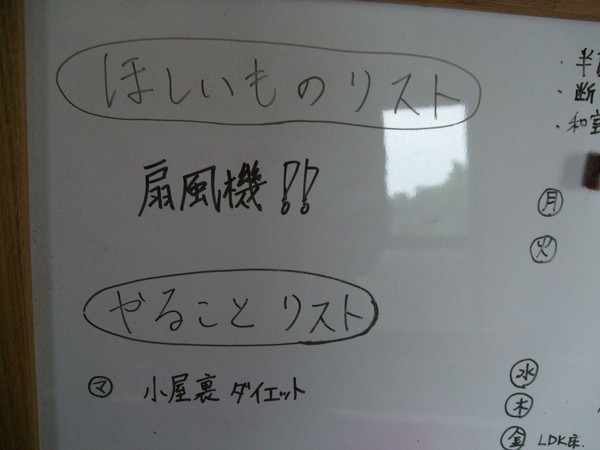 ほしいものリスト
扇風機!!
やることリスト
㋮ 小屋裏 ダイエット
・半
・断
・和室
㊊
㊋
㊌
㊍
㊎ LDK床.